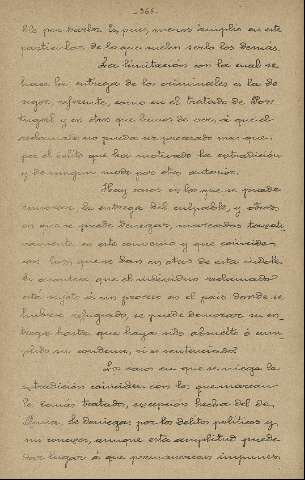 -366-
los por tanto, es, pues, menos amplio en este
particular de lo que suelen serlo los demás.
La limitación con la cual se
hace la entrega de los criminales es la de
rigor, referente, como en el tratado de Por-
tugal y en otros que hemos de ver, á que el
reclamado no pueda ser procesado mas que
por el delito que ha motivado la extradición
y de ningun modo por otro anterior.
Hay casos en los que se puede
demorar la entrega del culpable, y otros
en que se puede denegar, marcados taxati-
vamente en este convenio y que coinciden
con los que se dan en otros de esta indole.
Si acontece que el individuo reclamado
está sujeto á un proceso en el pais donde se
hubiere refugiado, se puede demorar su en-
trega hasta que haya sido absuelto ó cum-
plido su condena, si es sentenciado.
Los casos en que se niega la
extradición coinciden con los que marcan
los demás tratados, excepción hecha del de
Se deniega por los delitos politicos y
sus conexos, aunque esta amplitud puede
dar lugar á que permanezcan impunes